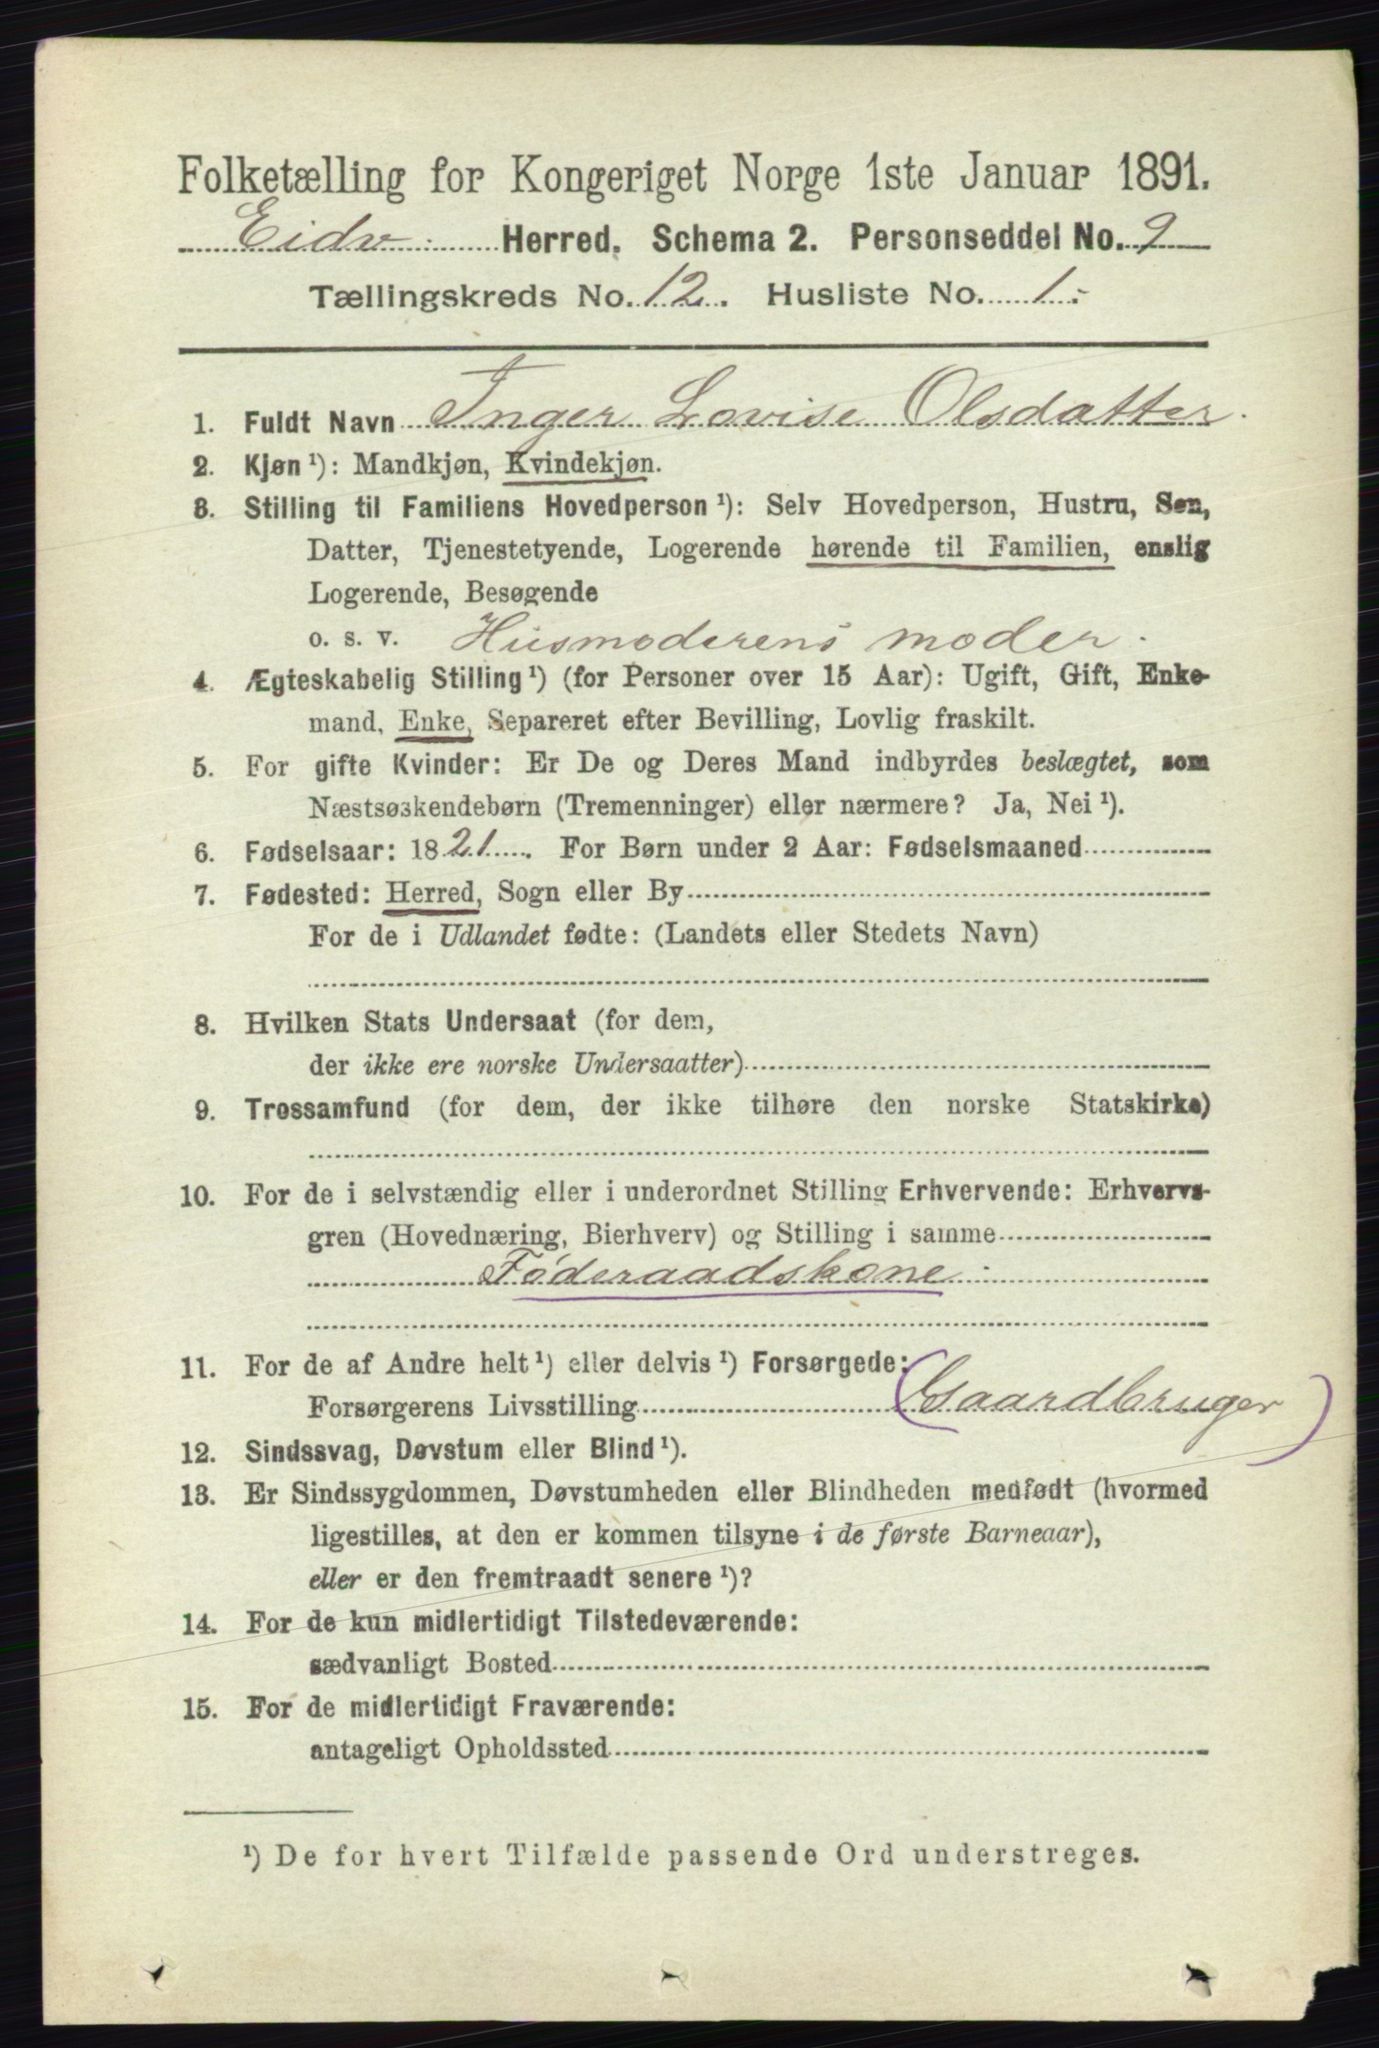 Folketælling for Kongeriget Norge 1ste Januar 1891.
Eidv. Herred. Schema 2. Personseddel No. 9
Tællingskreds No. 12. Husliste No. 1.
1. Fuldt Navn Inger Lovise Olsdatter.
2. Kjøn ¹): Mandkjøn, Kvindekjøn.
3. Stilling til Familiens Hovedperson ¹): Selv Hovedperson, Hustru, Søn,
Datter, Tjenestetyende, Logerende hørende til Familien, enslig
Logerende, Besøgende
o. s. v. Husmoderens moder.
4. Ægteskabelig Stilling ¹) (for Personer over 15 Aar): Ugift, Gift, Enke-
mand, Enke, Separeret efter Bevilling, Lovlig fraskilt.
5. For gifte Kvinder: Er De og Deres Mand indbyrdes beslægtet, som
Næstsøskendebørn (Tremenninger) eller nærmere? Ja, Nei ¹).
6. Fødselsaar: 1821. For Børn under 2 Aar: Fødselsmaaned
7. Fødested: Herred, Sogn eller By
For de i Udlandet fødte: (Landets eller Stedets Navn)
8. Hvilken Stats Undersaat (for dem,
der ikke ere norske Undersaatter)
9. Trossamfund (for dem, der ikke tilhøre den norske Statskirke)
10. For de i selvstændig eller i underordnet Stilling Erhvervende: Erhvervs-
gren (Hovednæring, Bierhverv) og Stilling i samme
Føderaadskone.
11. For de af Andre helt ¹) eller delvis ¹) Forsørgede:
Forsørgerens Livsstilling (Gaardbruger)
12. Sindssvag, Døvstum eller Blind ¹).
13. Er Sindssygdommen, Døvstumheden eller Blindheden medfødt (hvormed
ligestilles, at den er kommen tilsyne i de første Barneaar),
eller er den fremtraadt senere ¹)?
14. For de kun midlertidigt Tilstedeværende:
sædvanligt Bosted
15. For de midlertidigt Fraværende:
antageligt Opholdssted
¹) De for hvert Tilfælde passende Ord understreges.